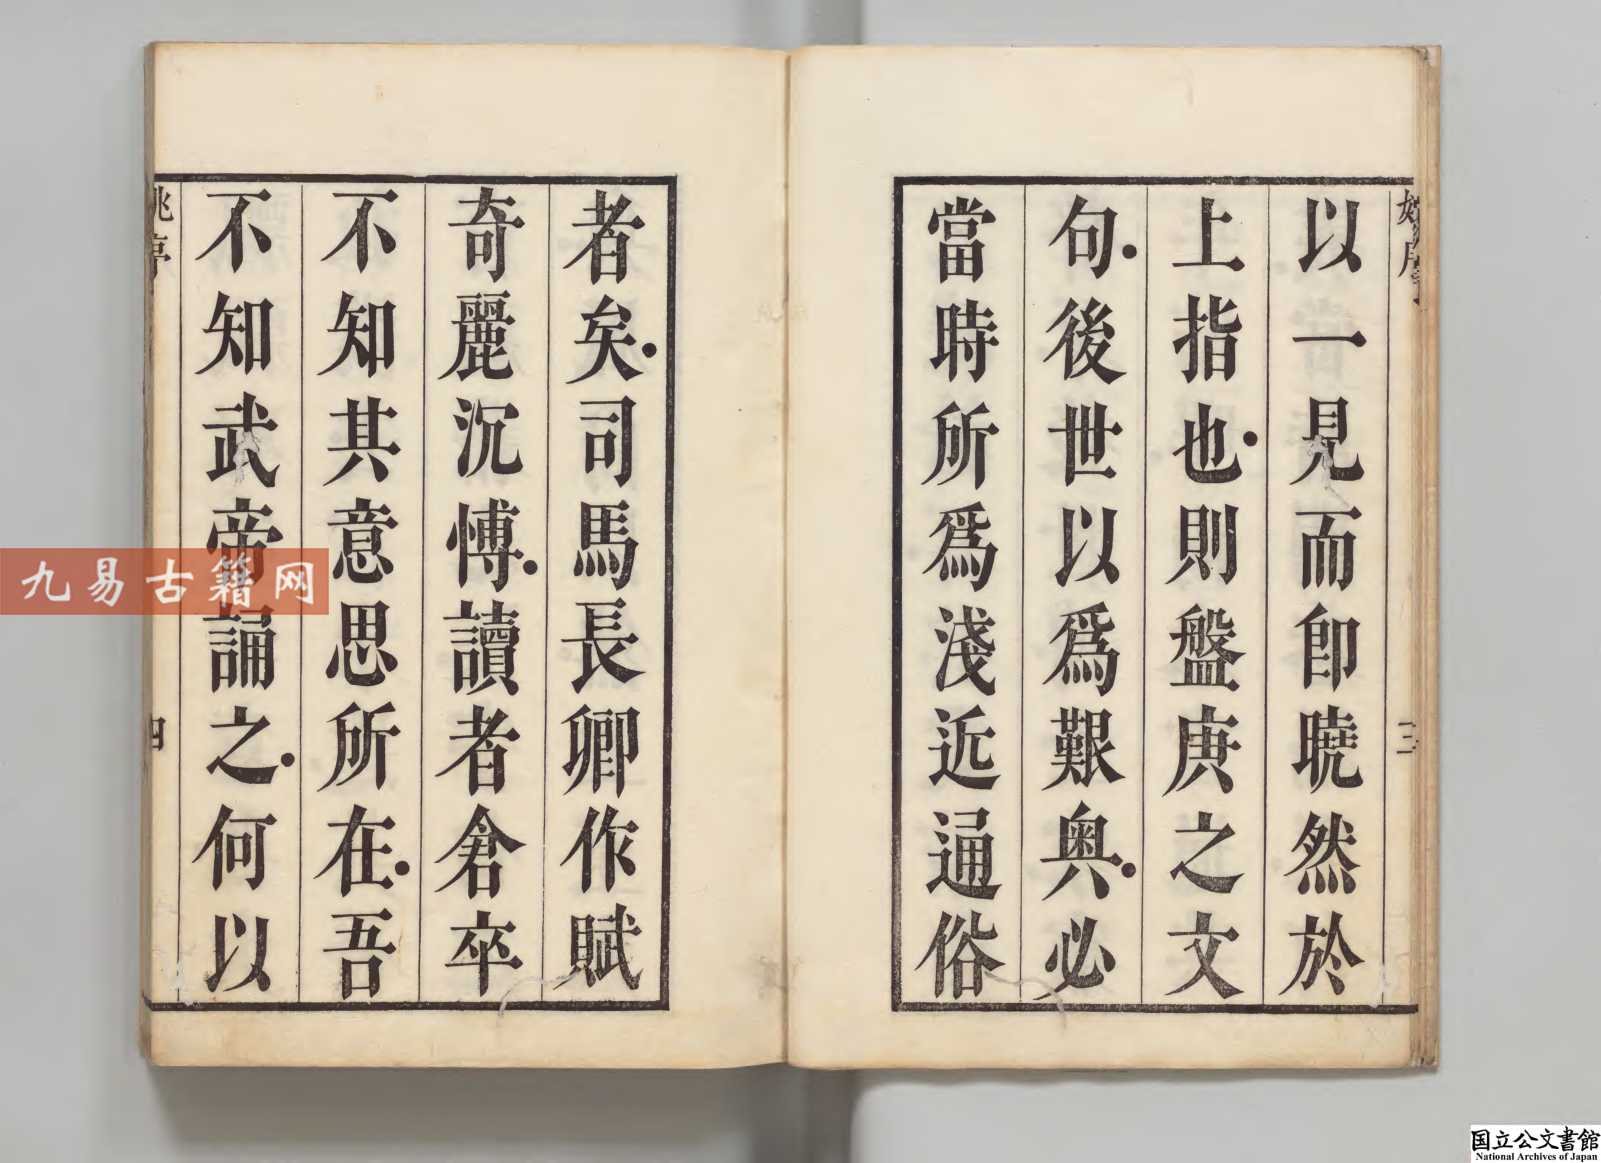 以一見而卽曉然於
上指也則盤庚之文
句後世以爲艱奧必
當時所爲淺近通俗
者矣司馬長卿作賦
奇麗沉愽讀者倉卒
不知其意思所在吾
不知武帝誦之何以
三
四
九易古籍网
国立公文書館
National Archives of Japan